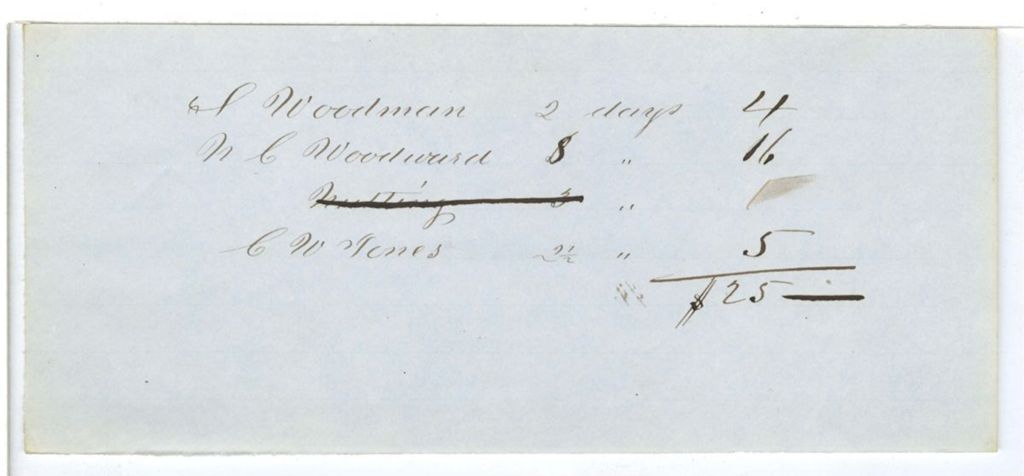 S Woodman 2 days 4
N C Woodward 8 " 16
Nutting 3 "
C W Jones 2½ " 5
$25 —